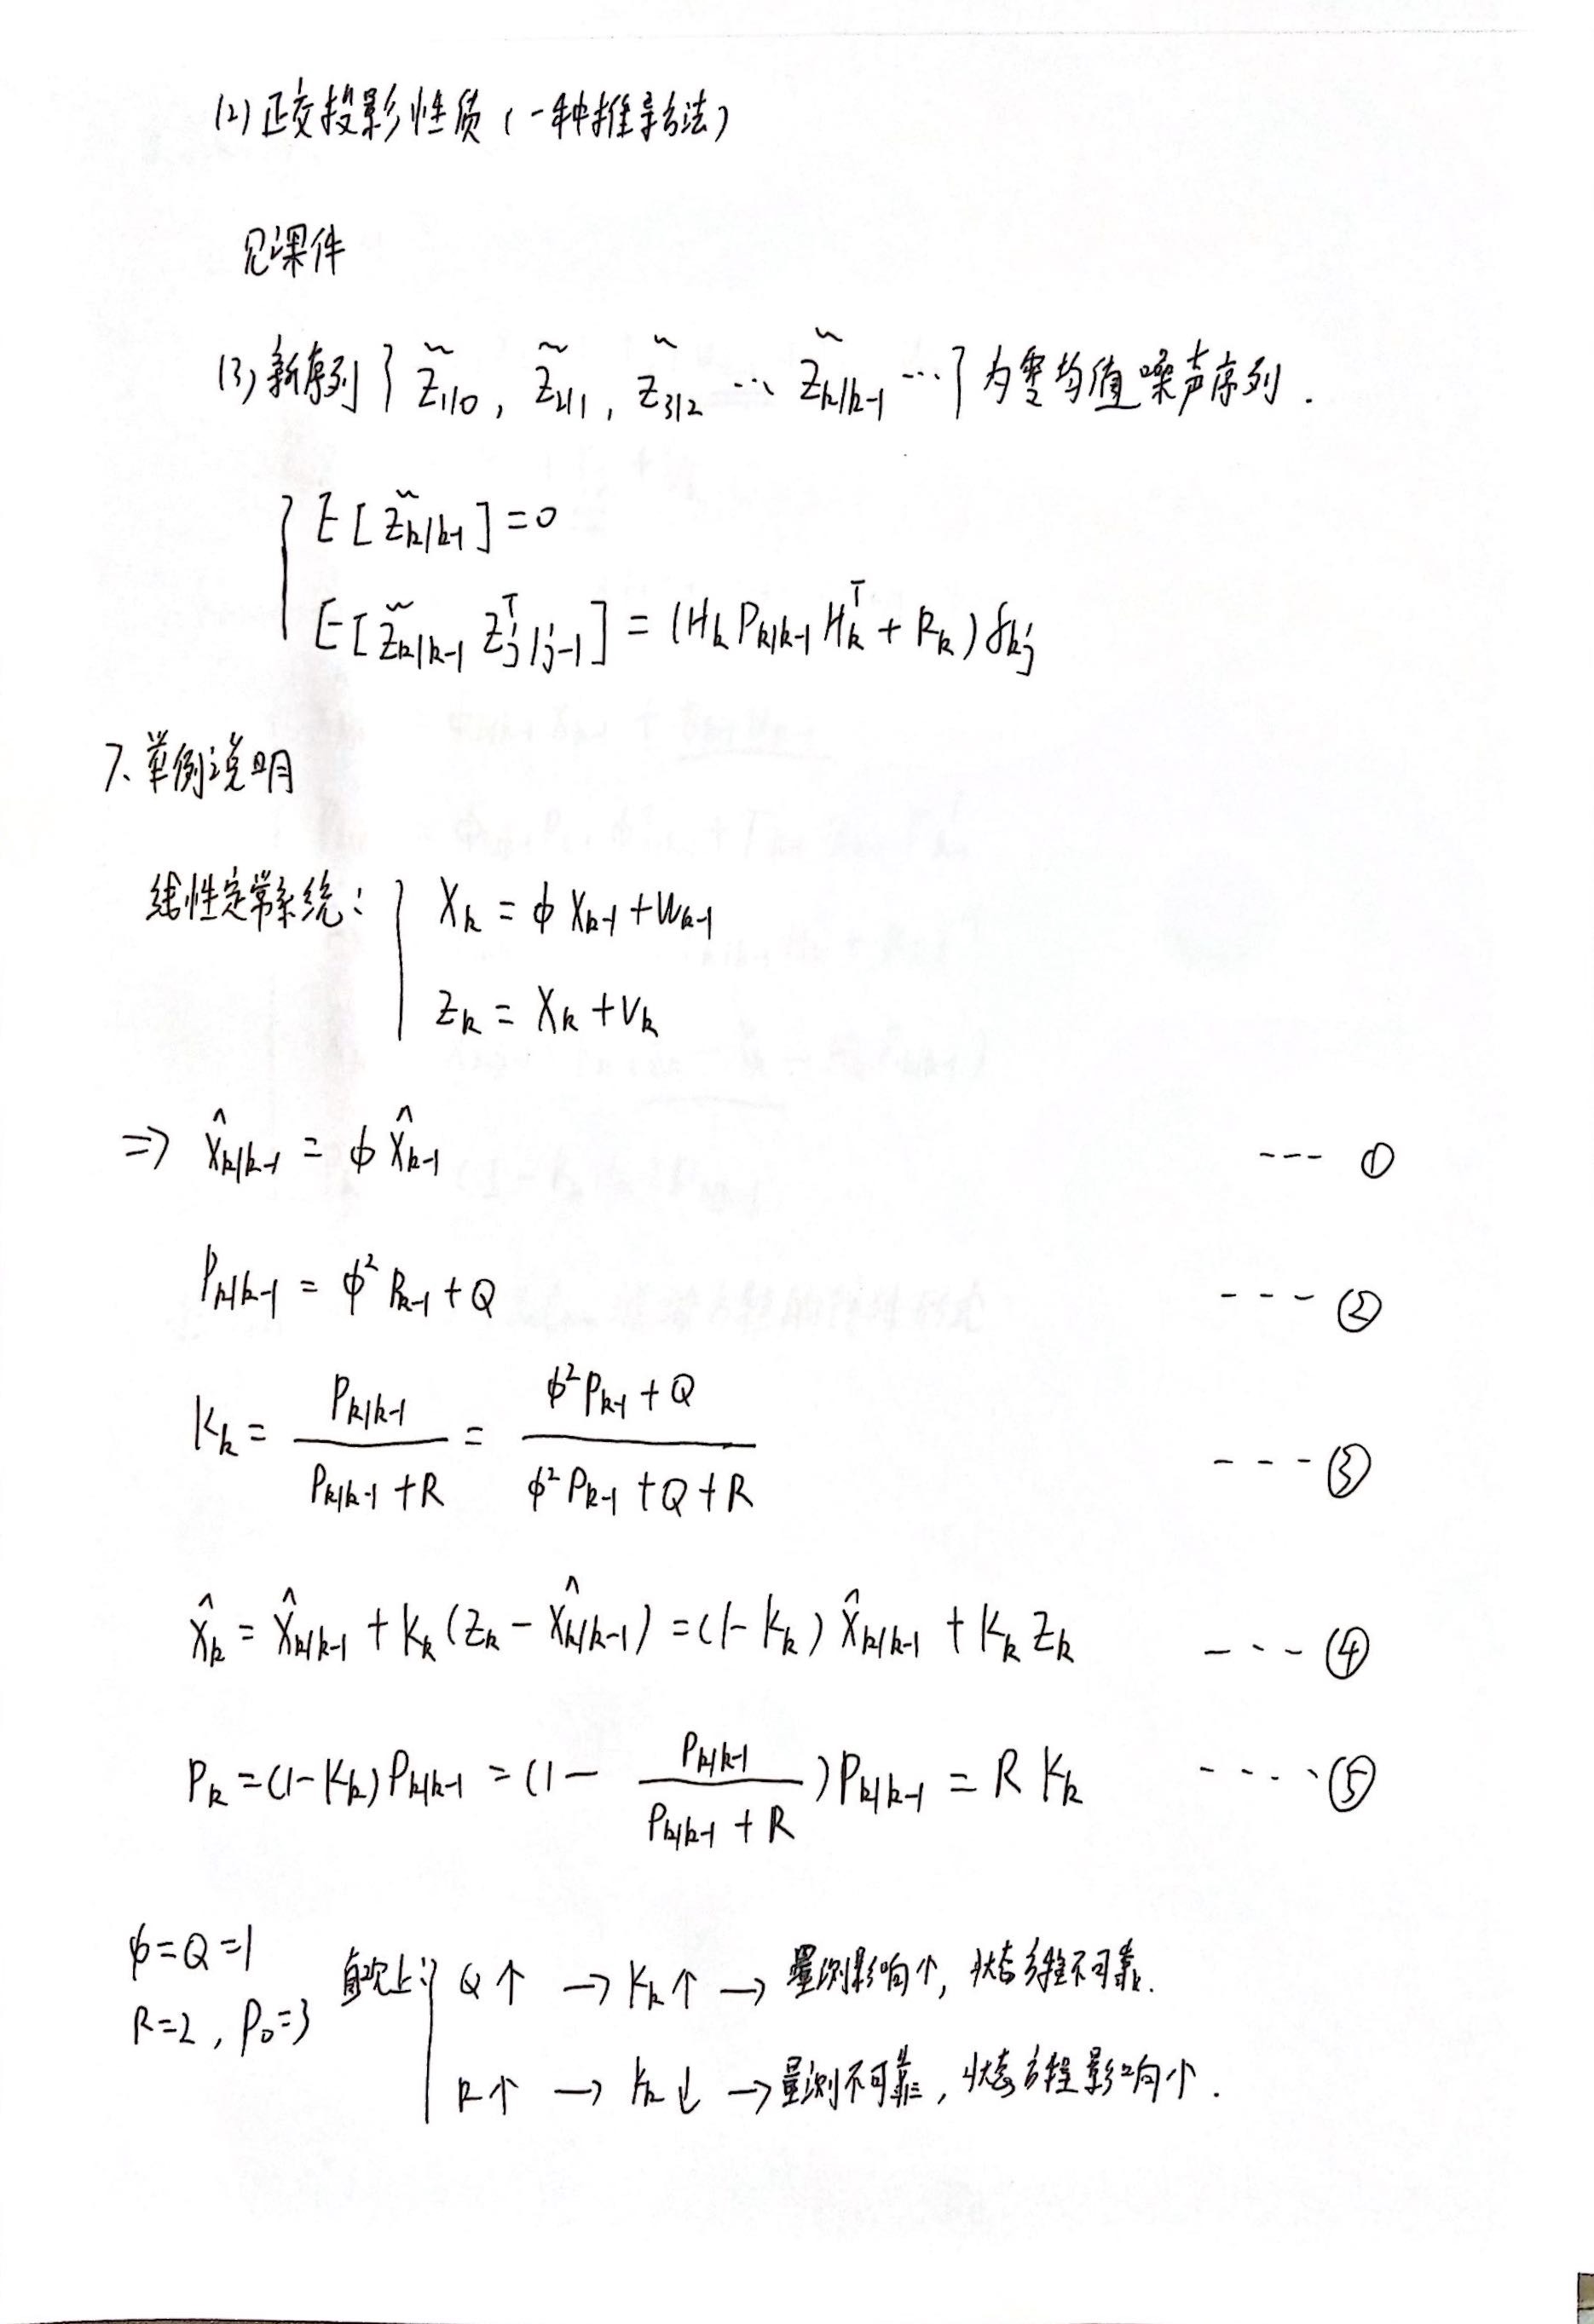 (2) 正交投影性质（一种推导方法）
见课件
(3) 新序列 { z̃₁|₀, z̃₂|₁, z̃₃|₂ ⋯ z̃ₖ|ₖ₋₁ ⋯ } 为零均值噪声序列.
E[z̃ₖ|ₖ₋₁] = 0
E[z̃ₖ|ₖ₋₁ zᵀⱼ|ⱼ₋₁] = (Hₖ Pₖ|ₖ₋₁ Hₖᵀ + Rₖ) δₖⱼ
7、举例说明
线性定常系统: { Xₖ = ϕ Xₖ₋₁ + Wₖ₋₁
zₖ = Xₖ + Vₖ
⇒ X̂ₖ|ₖ₋₁ = ϕ X̂ₖ₋₁ --- ①
Pₖ|ₖ₋₁ = ϕ² Pₖ₋₁ + Q ---- ②
Kₖ = Pₖ|ₖ₋₁ / (Pₖ|ₖ₋₁ + R) = (ϕ² Pₖ₋₁ + Q) / (ϕ² Pₖ₋₁ + Q + R) --- ③
X̂ₖ = X̂ₖ|ₖ₋₁ + Kₖ (zₖ − X̂ₖ|ₖ₋₁) = (1 − Kₖ) X̂ₖ|ₖ₋₁ + Kₖ zₖ --- ④
Pₖ = (1 − Kₖ) Pₖ|ₖ₋₁ = (1 − Pₖ|ₖ₋₁ / (Pₖ|ₖ₋₁ + R)) Pₖ|ₖ₋₁ = R Kₖ ---- ⑤
ϕ = Q = 1
R = 2, P₀ = 3
直观上: { Q ↑ → Kₖ ↑ → 量测影响个, 状态方程不可靠.
R ↑ → Kₖ ↓ → 量测不可靠, 状态方程影响个.